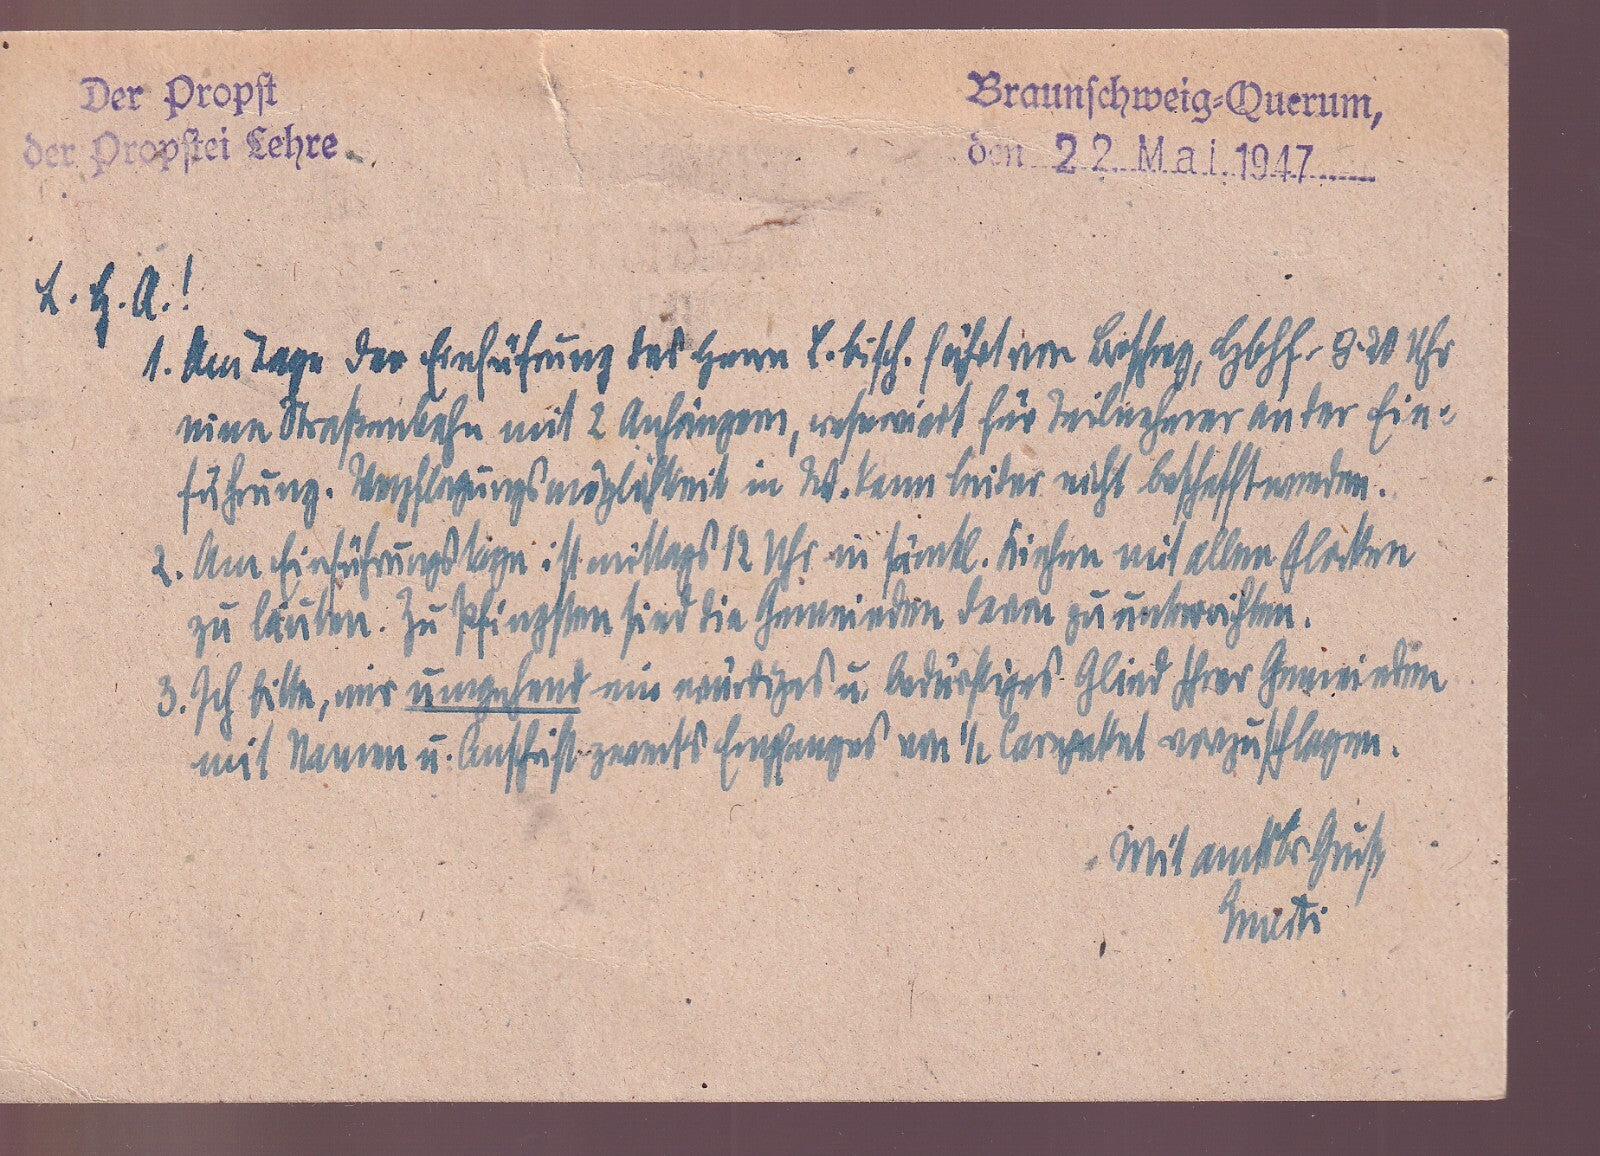 Der Propst
der Propstei Lehre
Braunschweig-Querum,
den 22. Mai 1947
L. H. A.!
1. Am Tage der Einführung des Herrn L.bisch. fährt von Brschwg, Hbhf. 8.20 Uhr
eine Straßenbahn mit 2 Anhängern, reserviert für Teilnehmer an der Ein-
führung. Verpflegungsmöglichkeit in W. kann leider nicht beschafft werden.
2. Am Einführungstage ist mittags 12 Uhr in sämtl. Kirchen mit allen Glocken
zu läuten. Zu Pfingsten sind die Gemeinden davon zu unterrichten.
3. Ich bitte, mir umgehend ein würdiges u. bedürftiges Glied Ihrer Gemeinden
mit Namen u. Anschrift zwecks Empfanges von Carepaket vorzuschlagen.
Mit amtsbr. Gruß